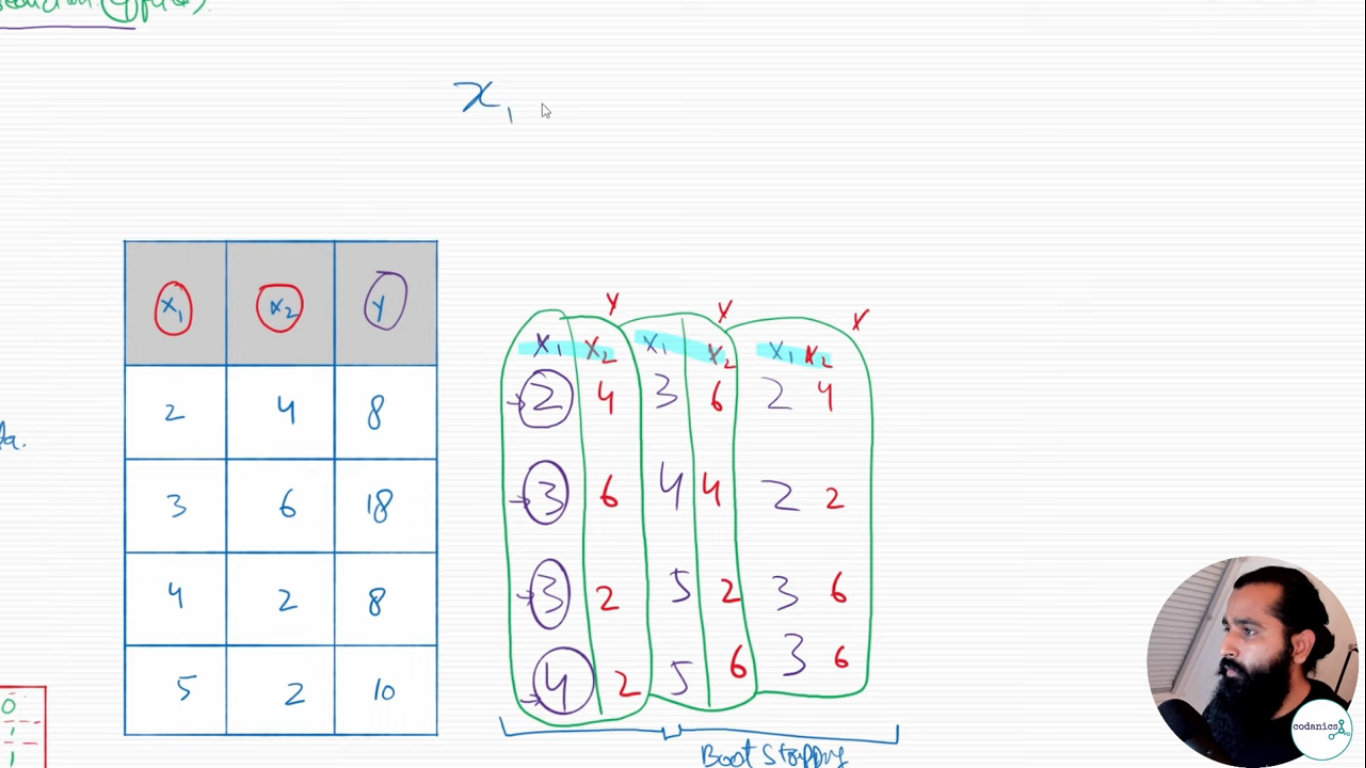 x₁
x₁ x₂ y
2 4 8
3 6 18
4 2 8
5 2 10
Y Y Y
x₁ x₂ x₁ x₂ x₁ x₂
2 4 3 6 2 4
3 6 4 4 2 2
3 2 5 2 3 6
4 2 5 6 3 6
0
1
1
codanics